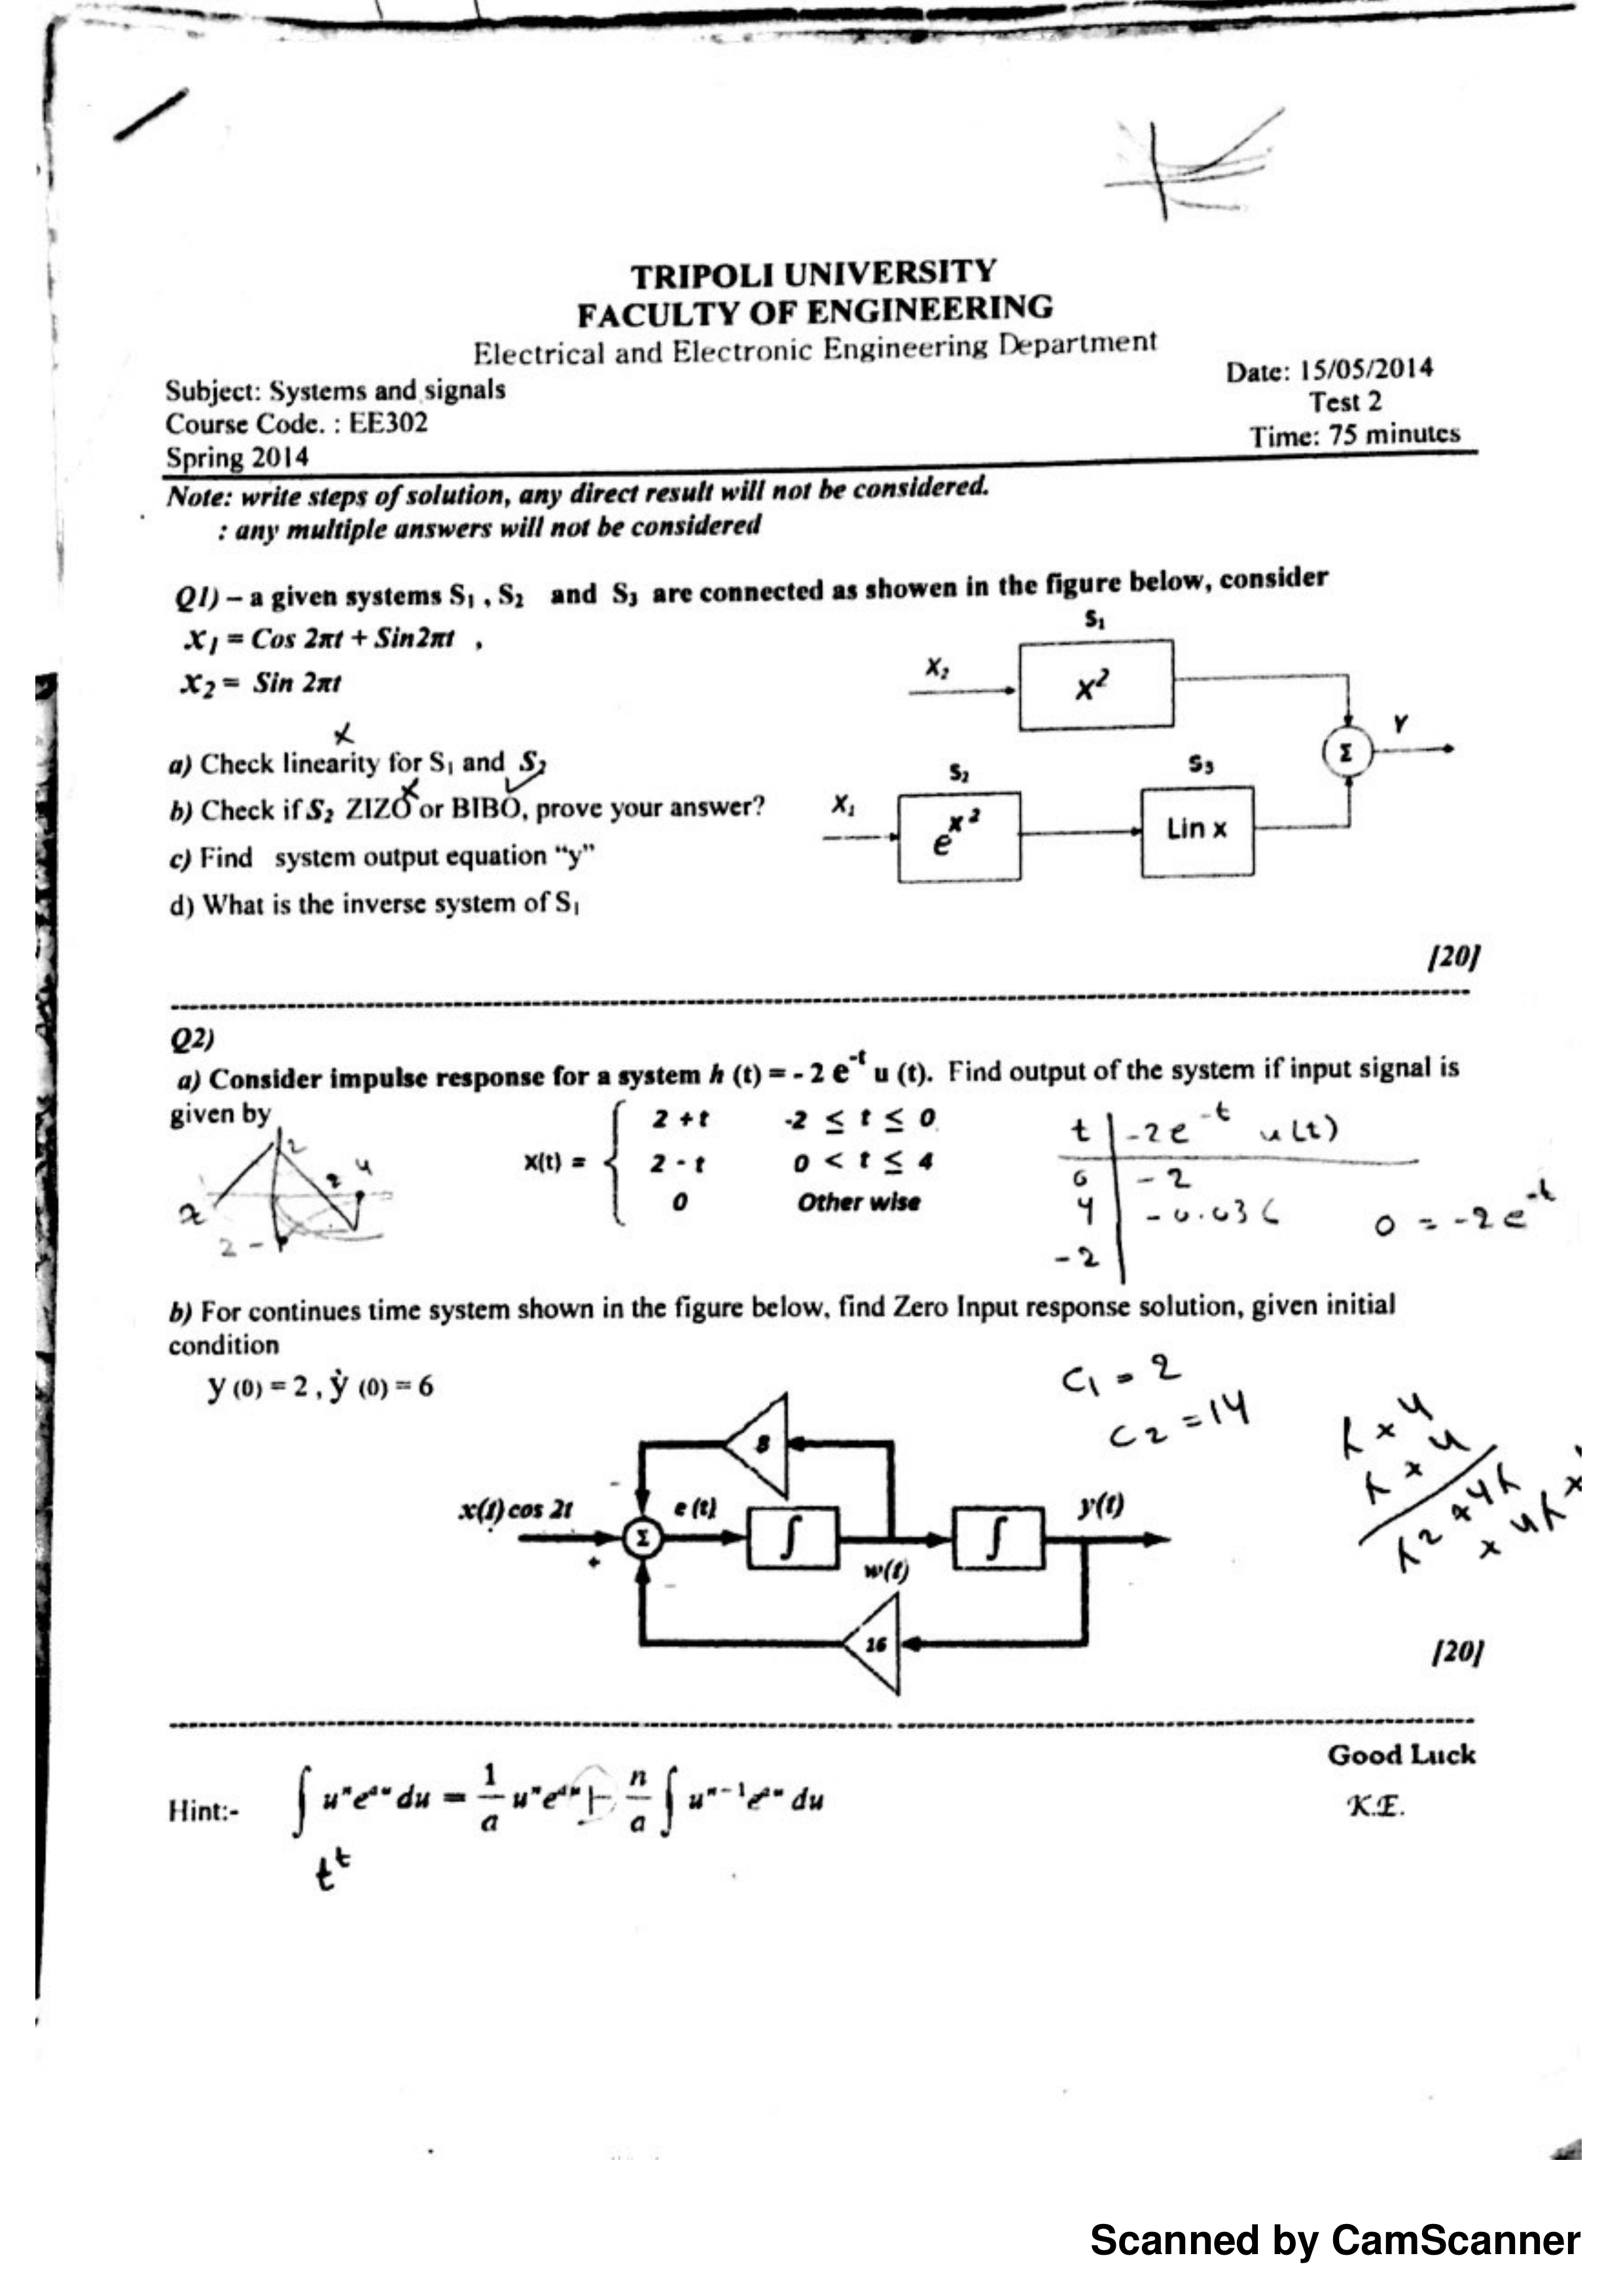 TRIPOLI UNIVERSITY
FACULTY OF ENGINEERING
Electrical and Electronic Engineering Department
Subject: Systems and signals
Date: 15/05/2014
Course Code. : EE302
Test 2
Spring 2014
Time: 75 minutes
Note: write steps of solution, any direct result will not be considered.
: any multiple answers will not be considered
Q1) – a given systems S₁ , S₂ and S₃ are connected as showen in the figure below, consider
x₁ = Cos 2πt + Sin2πt ,
x₂ = Sin 2πt
S₁
X₂
x²
Y
Σ
x
a) Check linearity for S₁ and S₂
S₂
S₃
b) Check if S₂ ZIZO or BIBO, prove your answer?
X₁
e^x²
Lin x
c) Find system output equation “y”
d) What is the inverse system of S₁
[20]
Q2)
a) Consider impulse response for a system h (t) = - 2 e^-t u (t). Find output of the system if input signal is
given by
x(t) =
2 + t -2 ≤ t ≤ 0
2 - t 0 < t ≤ 4
0 Other wise
2
2
4
2
2 -
t -2e^-t u(t)
0 -2
4 -0.036
-2
0 = -2e^-t
b) For continues time system shown in the figure below, find Zero Input response solution, given initial
condition
y (0) = 2 , ẏ (0) = 6
C₁ = 2
C₂ = 14
8
x(t) cos 2t
Σ
e (t)
∫
w(t)
∫
y(t)
-
+
-
16
[20]
Good Luck
Hint:- ∫ uⁿe^au du = 1/a uⁿe^au - n/a ∫ uⁿ⁻¹e^au du
K.E.
t^t
Scanned by CamScanner